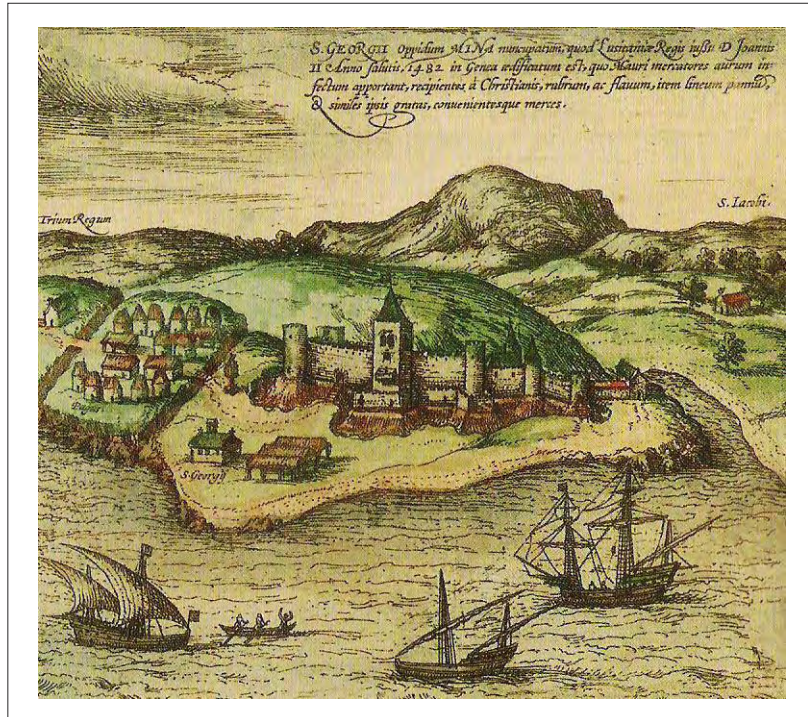 S. GEORGII Oppidum MINA nuncupatum, quod Lusitaniæ Regis iussu D Joannis
II Anno salutis, 1482 in Genea ædificatum est, quo Mauri mercatores aurum in=
fectum apportant, recipientes à Christianis, rubrum, ac flauum, item lineum pannũ,
& similes ipsis gratas, convenientesque merces.
Trium Regum
S. Iacobi.
S. Georgij